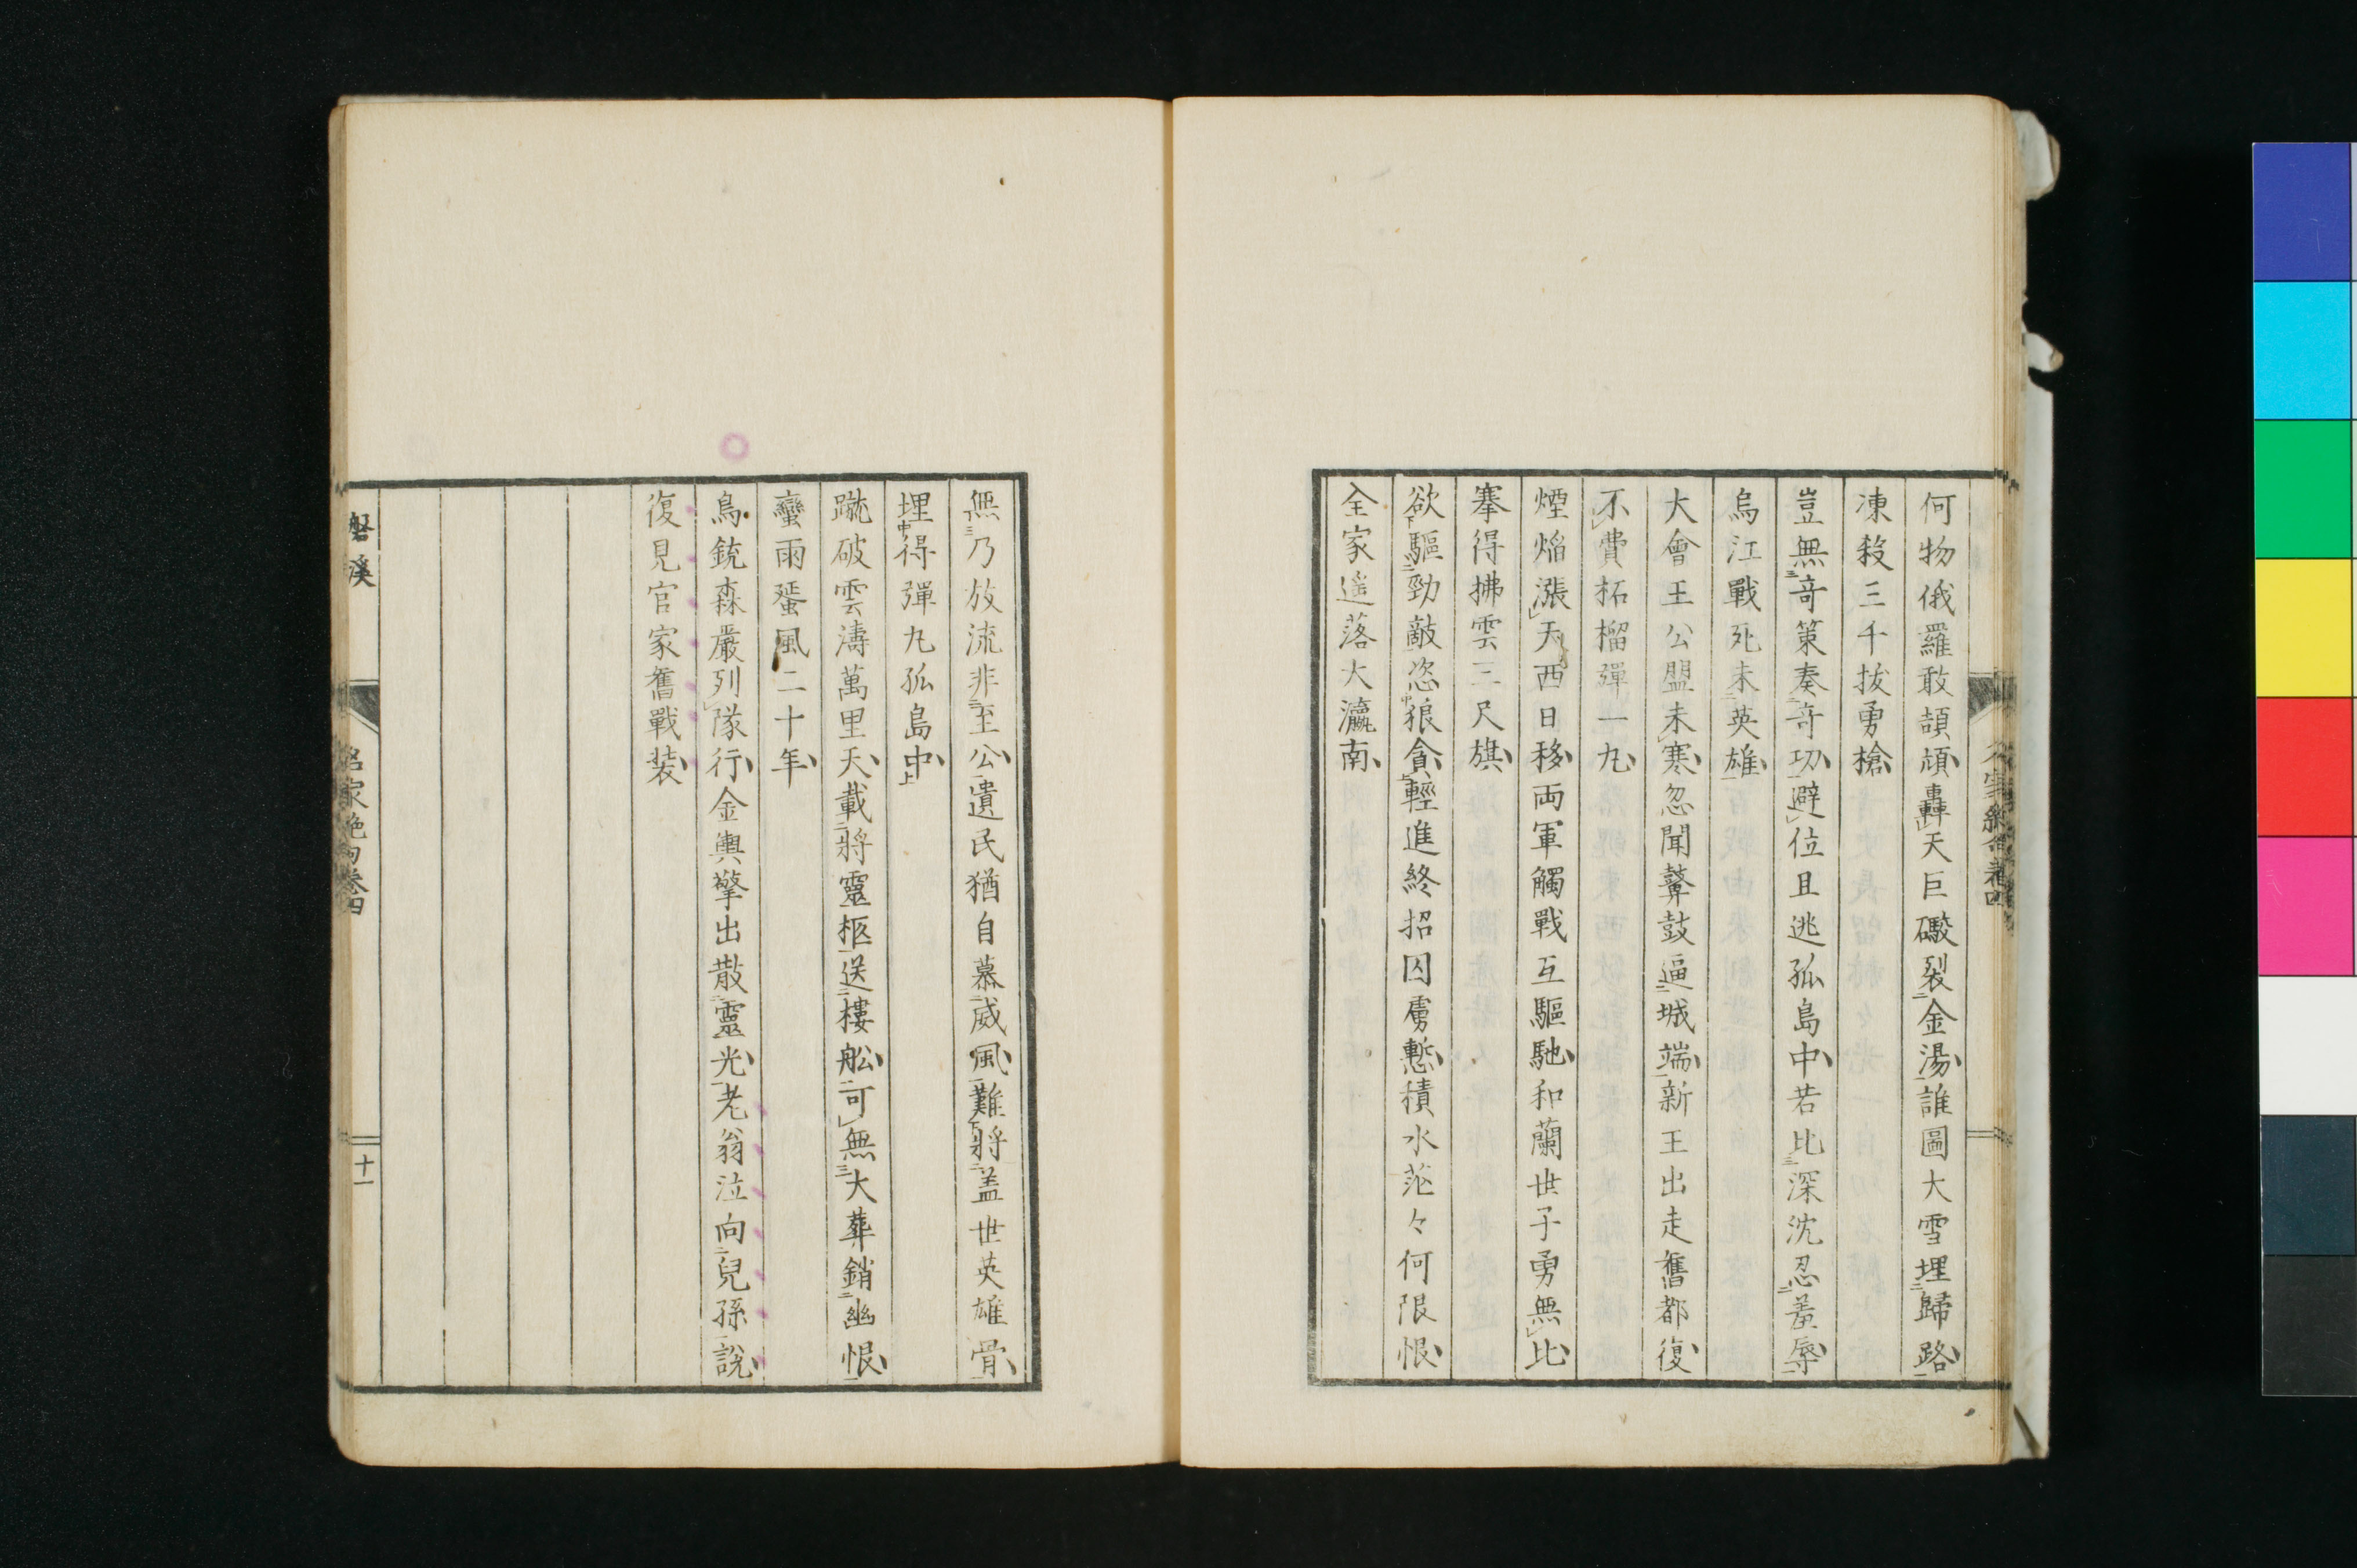 何物俄羅敢頡頏轟天巨礮裂金湯誰圖大雪埋歸路
凍殺三千拔勇槍
豈無奇策奏奇功避位且逃孤島中若比深沈忍羞辱
烏江戰死未英雄
大會王公盟未寒忽聞鼙鼓逼城端新王出走舊都復
不費柘榴彈一丸
煙焔漲天西日移両軍觸戰互驅馳和蘭世子勇無比
搴得拂雲三尺旗
欲驅勁敵恣狼貪輕進終招囚虜慙積水茫々何限恨
全家遥落大瀛南
無乃放流非至公遺民猶自慕威風難將盖世英雄骨
埋得彈丸孤島中
蹴破雲濤萬里天載將靈柩送樓舩可無大葬銷幽恨
蠻雨蜑風二十年
鳥銃森嚴列隊行金輿擎出散靈光老翁泣向兒孫說
復見官家舊戰装
磐溪
名家絶句卷四
十一